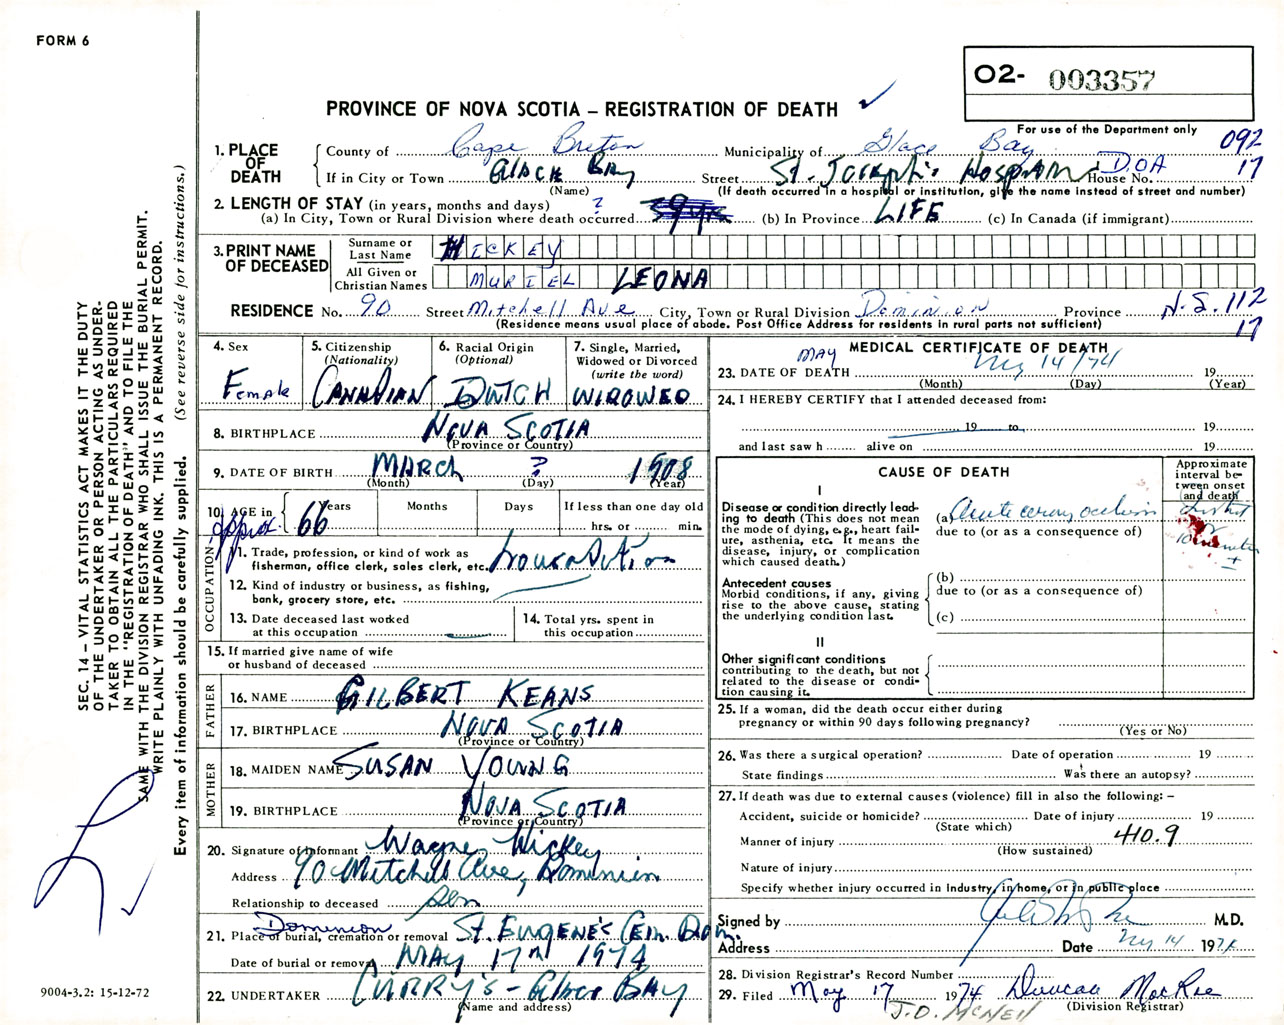 FORM 6
O2- 003357
PROVINCE OF NOVA SCOTIA – REGISTRATION OF DEATH ✓
For use of the Department only
092
1. PLACE OF DEATH
County of Cape Breton Municipality of Glace Bay
If in City or Town GLACE BAY Street St. Joseph's Hospital House No. D.O.A 17
(Name) (If death occurred in a hospital or institution, give the name instead of street and number)
2. LENGTH OF STAY (in years, months and days) ?
(a) In City, Town or Rural Division where death occurred 39 yrs (b) In Province LIFE (c) In Canada (if immigrant)
3. PRINT NAME OF DECEASED
Surname or Last Name HICKEY
All Given or Christian Names MURIEL LEONA
RESIDENCE No. 90 Street Mitchell Ave City, Town or Rural Division Dominion Province N.S. 112
(Residence means usual place of abode. Post Office Address for residents in rural parts not sufficient) 17
4. Sex
Female
5. Citizenship (Nationality)
CANADIAN
6. Racial Origin (Optional)
DUTCH
7. Single, Married, Widowed or Divorced (write the word)
WIDOWED
8. BIRTHPLACE NOVA SCOTIA
(Province or Country)
9. DATE OF BIRTH MARCH ? 1908
(Month) (Day) (Year)
10. AGE in Years Months Days If less than one day old
approx. 66 hrs. or min.
OCCUPATION
11. Trade, profession, or kind of work as fisherman, office clerk, sales clerk, etc.
12. Kind of industry or business, as fishing, bank, grocery store, etc.
13. Date deceased last worked at this occupation
14. Total yrs. spent in this occupation
15. If married give name of wife or husband of deceased
FATHER
16. NAME GILBERT KEANS
17. BIRTHPLACE NOVA SCOTIA
(Province or Country)
MOTHER
18. MAIDEN NAME SUSAN YOUNG
19. BIRTHPLACE NOVA SCOTIA
(Province or Country)
20. Signature of Informant Wayne Hickey
Address 90 Mitchell Ave, Dominion
Relationship to deceased Son
Dominion
21. Place of burial, cremation or removal ST. EUGENE'S Cem. Dom.
Date of burial or removal MAY 17TH 1974
22. UNDERTAKER CURRY'S - Glace BAY
(Name and address)
MEDICAL CERTIFICATE OF DEATH
MAY
23. DATE OF DEATH My 14/74 19
(Month) (Day) (Year)
24. I HEREBY CERTIFY that I attended deceased from:
19 to 19
and last saw h alive on 19
CAUSE OF DEATH
Approximate interval between onset and death
I
Disease or condition directly leading to death (This does not mean the mode of dying, e.g., heart failure, asthenia, etc. It means the disease, injury, or complication which caused death.)
(a) Acute coronary occlusion
due to (or as a consequence of)
Antecedent causes
Morbid conditions, if any, giving rise to the above cause, stating the underlying condition last.
(b)
due to (or as a consequence of)
(c)
II
Other significant conditions contributing to the death, but not related to the disease or condition causing it.
25. If a woman, did the death occur either during pregnancy or within 90 days following pregnancy?
(Yes or No)
26. Was there a surgical operation? Date of operation 19
State findings Was there an autopsy?
27. If death was due to external causes (violence) fill in also the following: –
Accident, suicide or homicide? Date of injury 19
(State which)
Manner of injury 410.9
(How sustained)
Nature of injury
Specify whether injury occurred in Industry, in home, or in public place
Signed by M.D.
Address Date My 14 1974
28. Division Registrar's Record Number
29. Filed May 17 1974 Duncan MacRae
(Division Registrar)
J.D. McNEIL
SEC. 14 – VITAL STATISTICS ACT MAKES IT THE DUTY
OF THE UNDERTAKER OR PERSON ACTING AS UNDER-
TAKER TO OBTAIN ALL THE PARTICULARS REQUIRED
IN THE "REGISTRATION OF DEATH" AND TO FILE THE
SAME WITH THE DIVISION REGISTRAR WHO SHALL ISSUE THE BURIAL PERMIT.
WRITE PLAINLY WITH UNFADING INK. THIS IS A PERMANENT RECORD.
Every item of information should be carefully supplied. (See reverse side for instructions.)
9004-3.2: 15-12-72